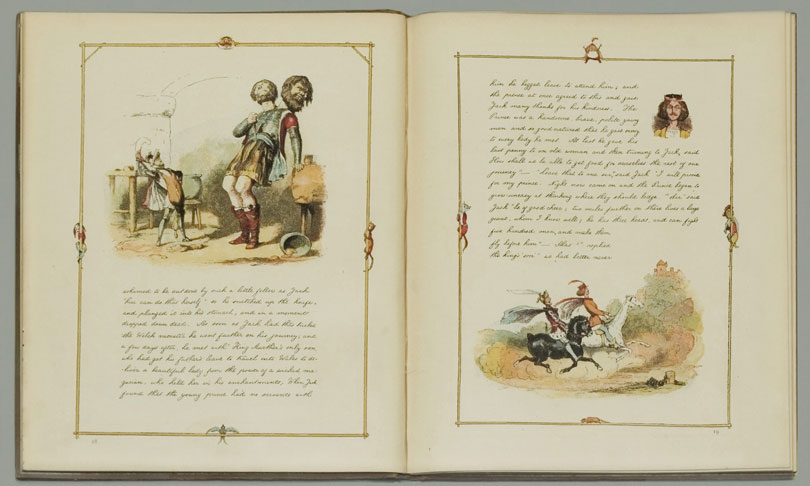 ashamed to be outdone by such a little fellow as Jack
"hur can do this hurself" so he snatched up the knife,
and plunged it into his stomach, and in a moment
dropped down dead. As soon as Jack had thus tricked
the Welch monster, he went farther on his journey; and
a few days after, he met with King Arthur's only son,
who had got his father's leave to travel into Wales to de-
liver a beautiful lady from the power of a wicked ma-
gician, who held her in his enchantments. When Jack
found that the young prince had no servants with
18
him he begged leave to attend him; and
the prince at once agreed to this and gave
Jack many thanks for his kindness. The
Prince was a handsome, brave, polite young
man and so good natured that he gave money
to every body he met. At last he gave his
last penny to an old woman and then turning to Jack, said
How shall we be able to get food for ourselves the rest of our
journey"— "Leave that to me sir," said Jack "I will provide
for my prince. Night now came on and the Prince began to
grow uneasy at thinking where they should lodge. "Sir" said
Jack "be of good cheer; two miles further on there lives a large
giant, whom I know well; he has three heads, and can fight
five hundred men, and make them
fly before him"— "Alas!" replied
the king's son" we had better never
19